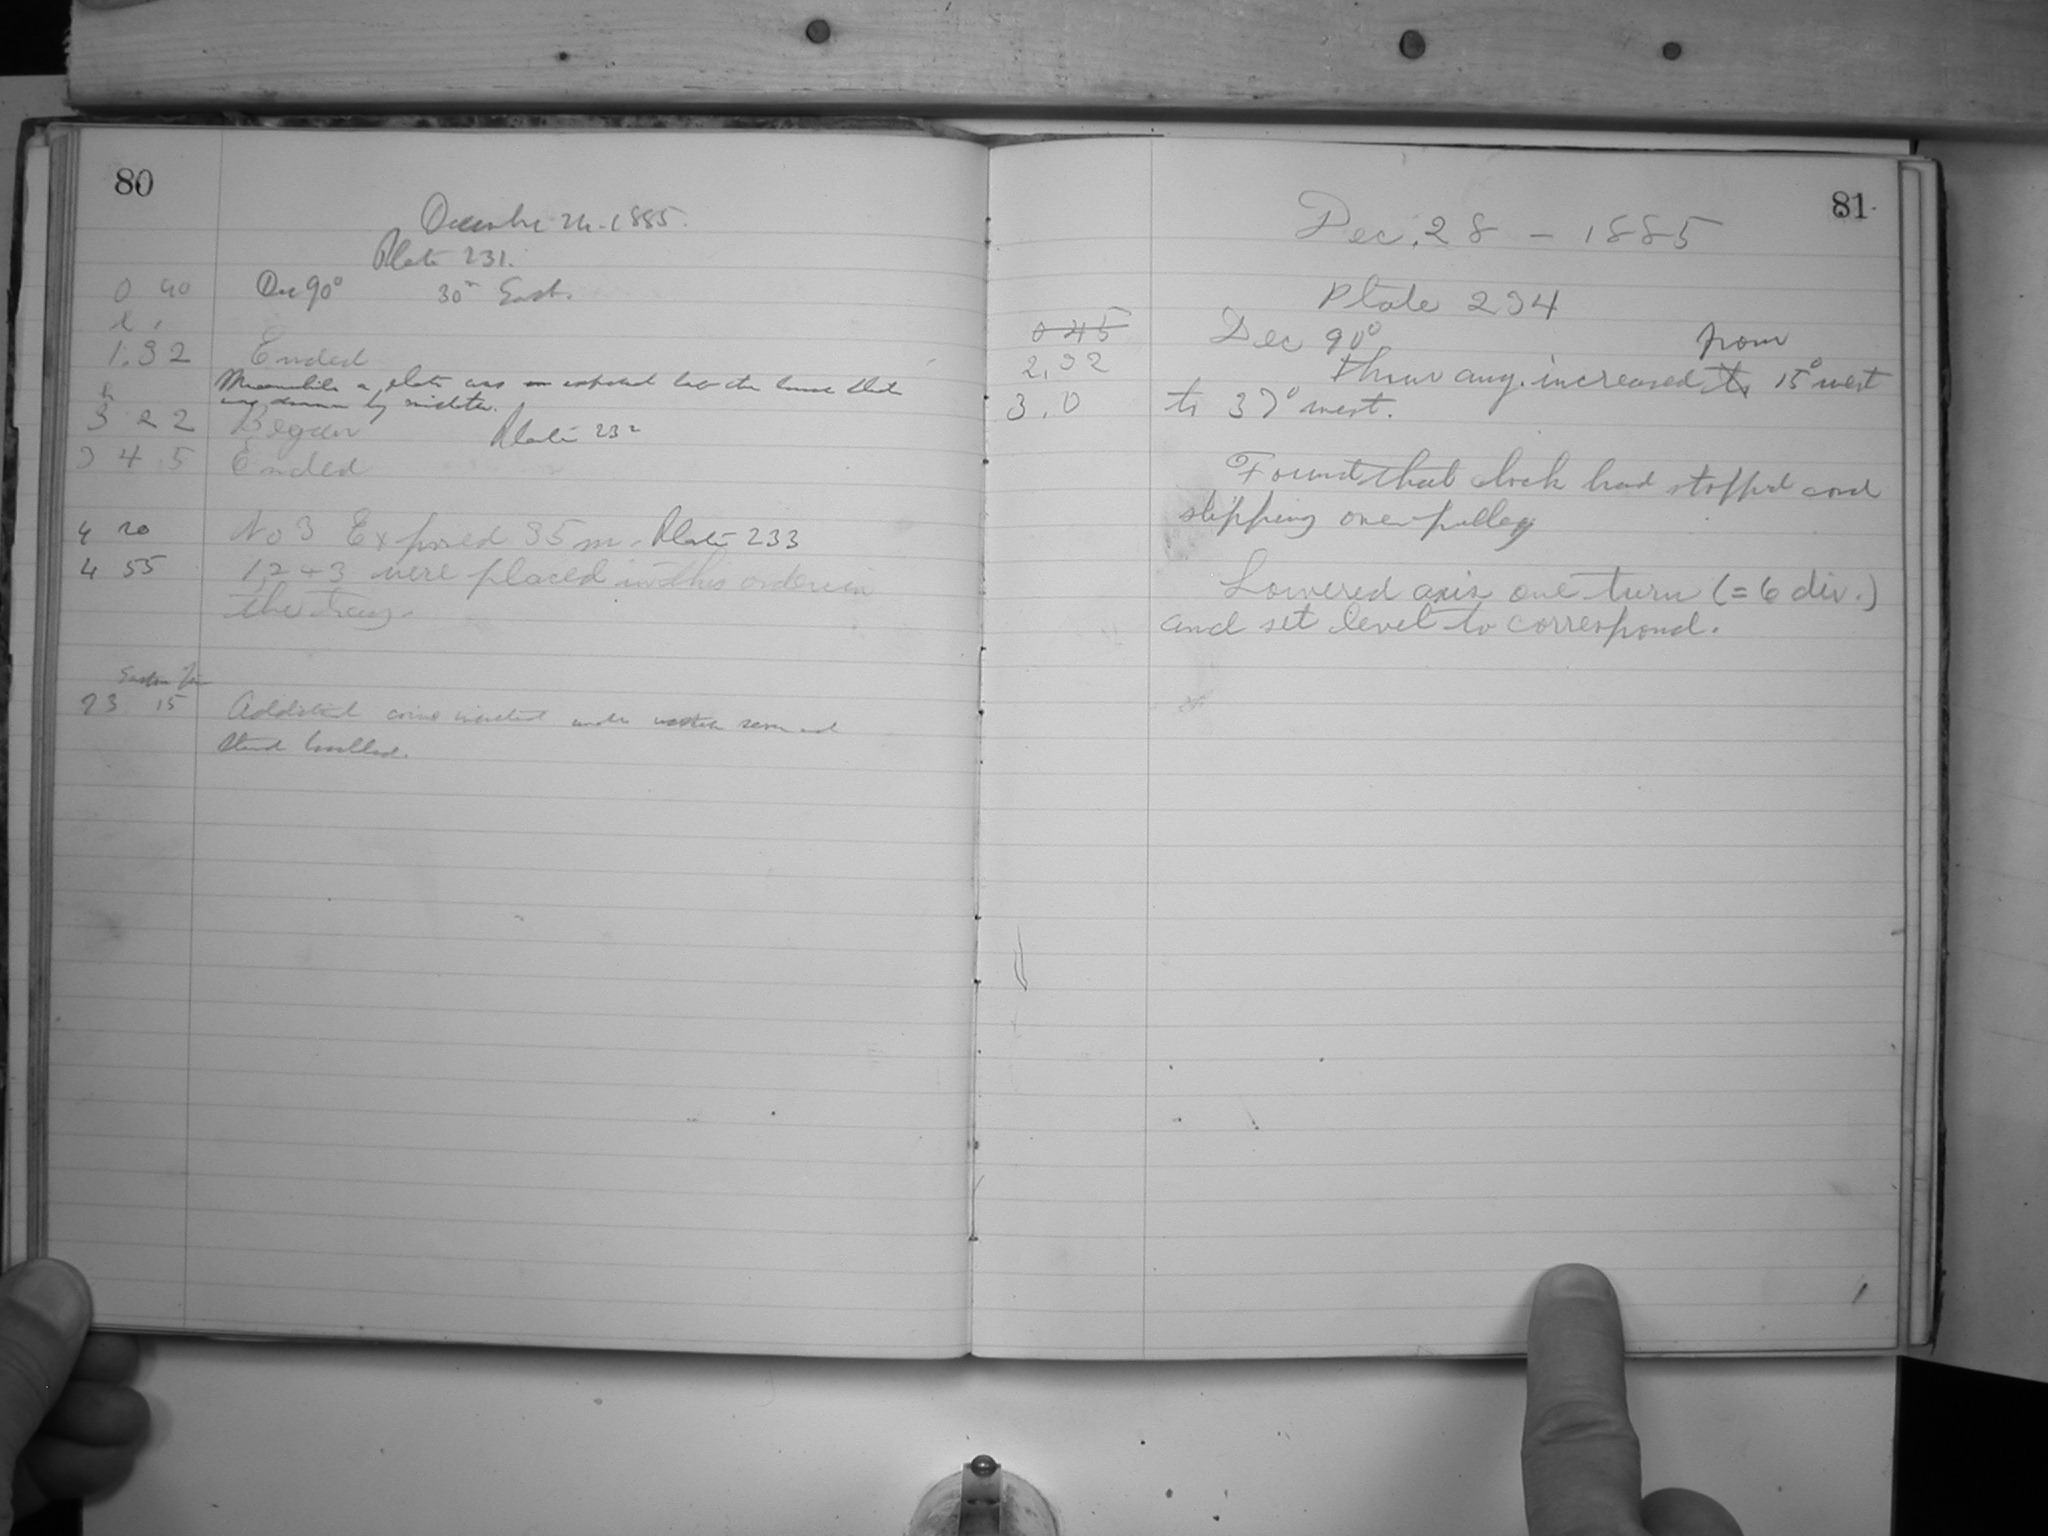 80
December 24. 1885.
Plate 231.
0 40 Dec 90° 30m East.
h
1.32 Ended
Meanwhile a plate was exposed but the house that
was drawn by
h
3 22 Began Plate 232
3 4 5 Ended
4 20 No 3 Exposed 35 m. Plate 233
4 55 1, 2 + 3 were placed in this order in
the tray.
Eastern Time
23 15 Additional inserted under western screw and
stand levelled.
81
Dec. 28 - 1885
Plate 234
0 45 Dec 90° from
2.32 Thour ang. increased to 15° west
3.0 to 37° west.
Found that clock had stopped cord
slipping over pulley
Lowered axis one turn (= 6 div.)
and set level to correspond.